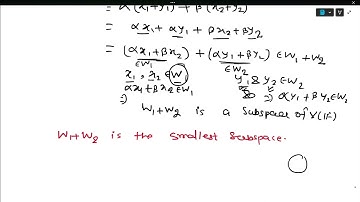 = α(x₁+y₁) + β(x₂+y₂)
= αx₁ + αy₁ + βx₂ + βy₂
= (αx₁+βx₂) + (αy₁+βy₂) ∈ W₁+W₂
∈W₁ ∈W₂
x₁, x₂ ∈ W₁ y₁ & y₂ ∈ W₂
αx₁+βx₂ ∈ W₁ so ⇒ αy₁+βy₂ ∈ W₂
⇒ W₁+W₂ is a subspace of V(IF)
W₁+W₂ is the smallest subspace.